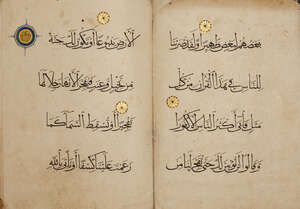 بعضهم لبعض ظهيرا ولقد صرفنا
للناس في هذا القرآن من كل
مثل فأبى أكثر الناس إلا كفورا
وقالوا لن نؤمن لك حتى تفجر لنا من
الأرض ينبوعا أو تكون لك جنة
من نخيل وعنب فتفجر الأنهار خلالها
تفجيرا أو تسقط السماء كما
زعمت علينا كسفا أو تأتي بالله